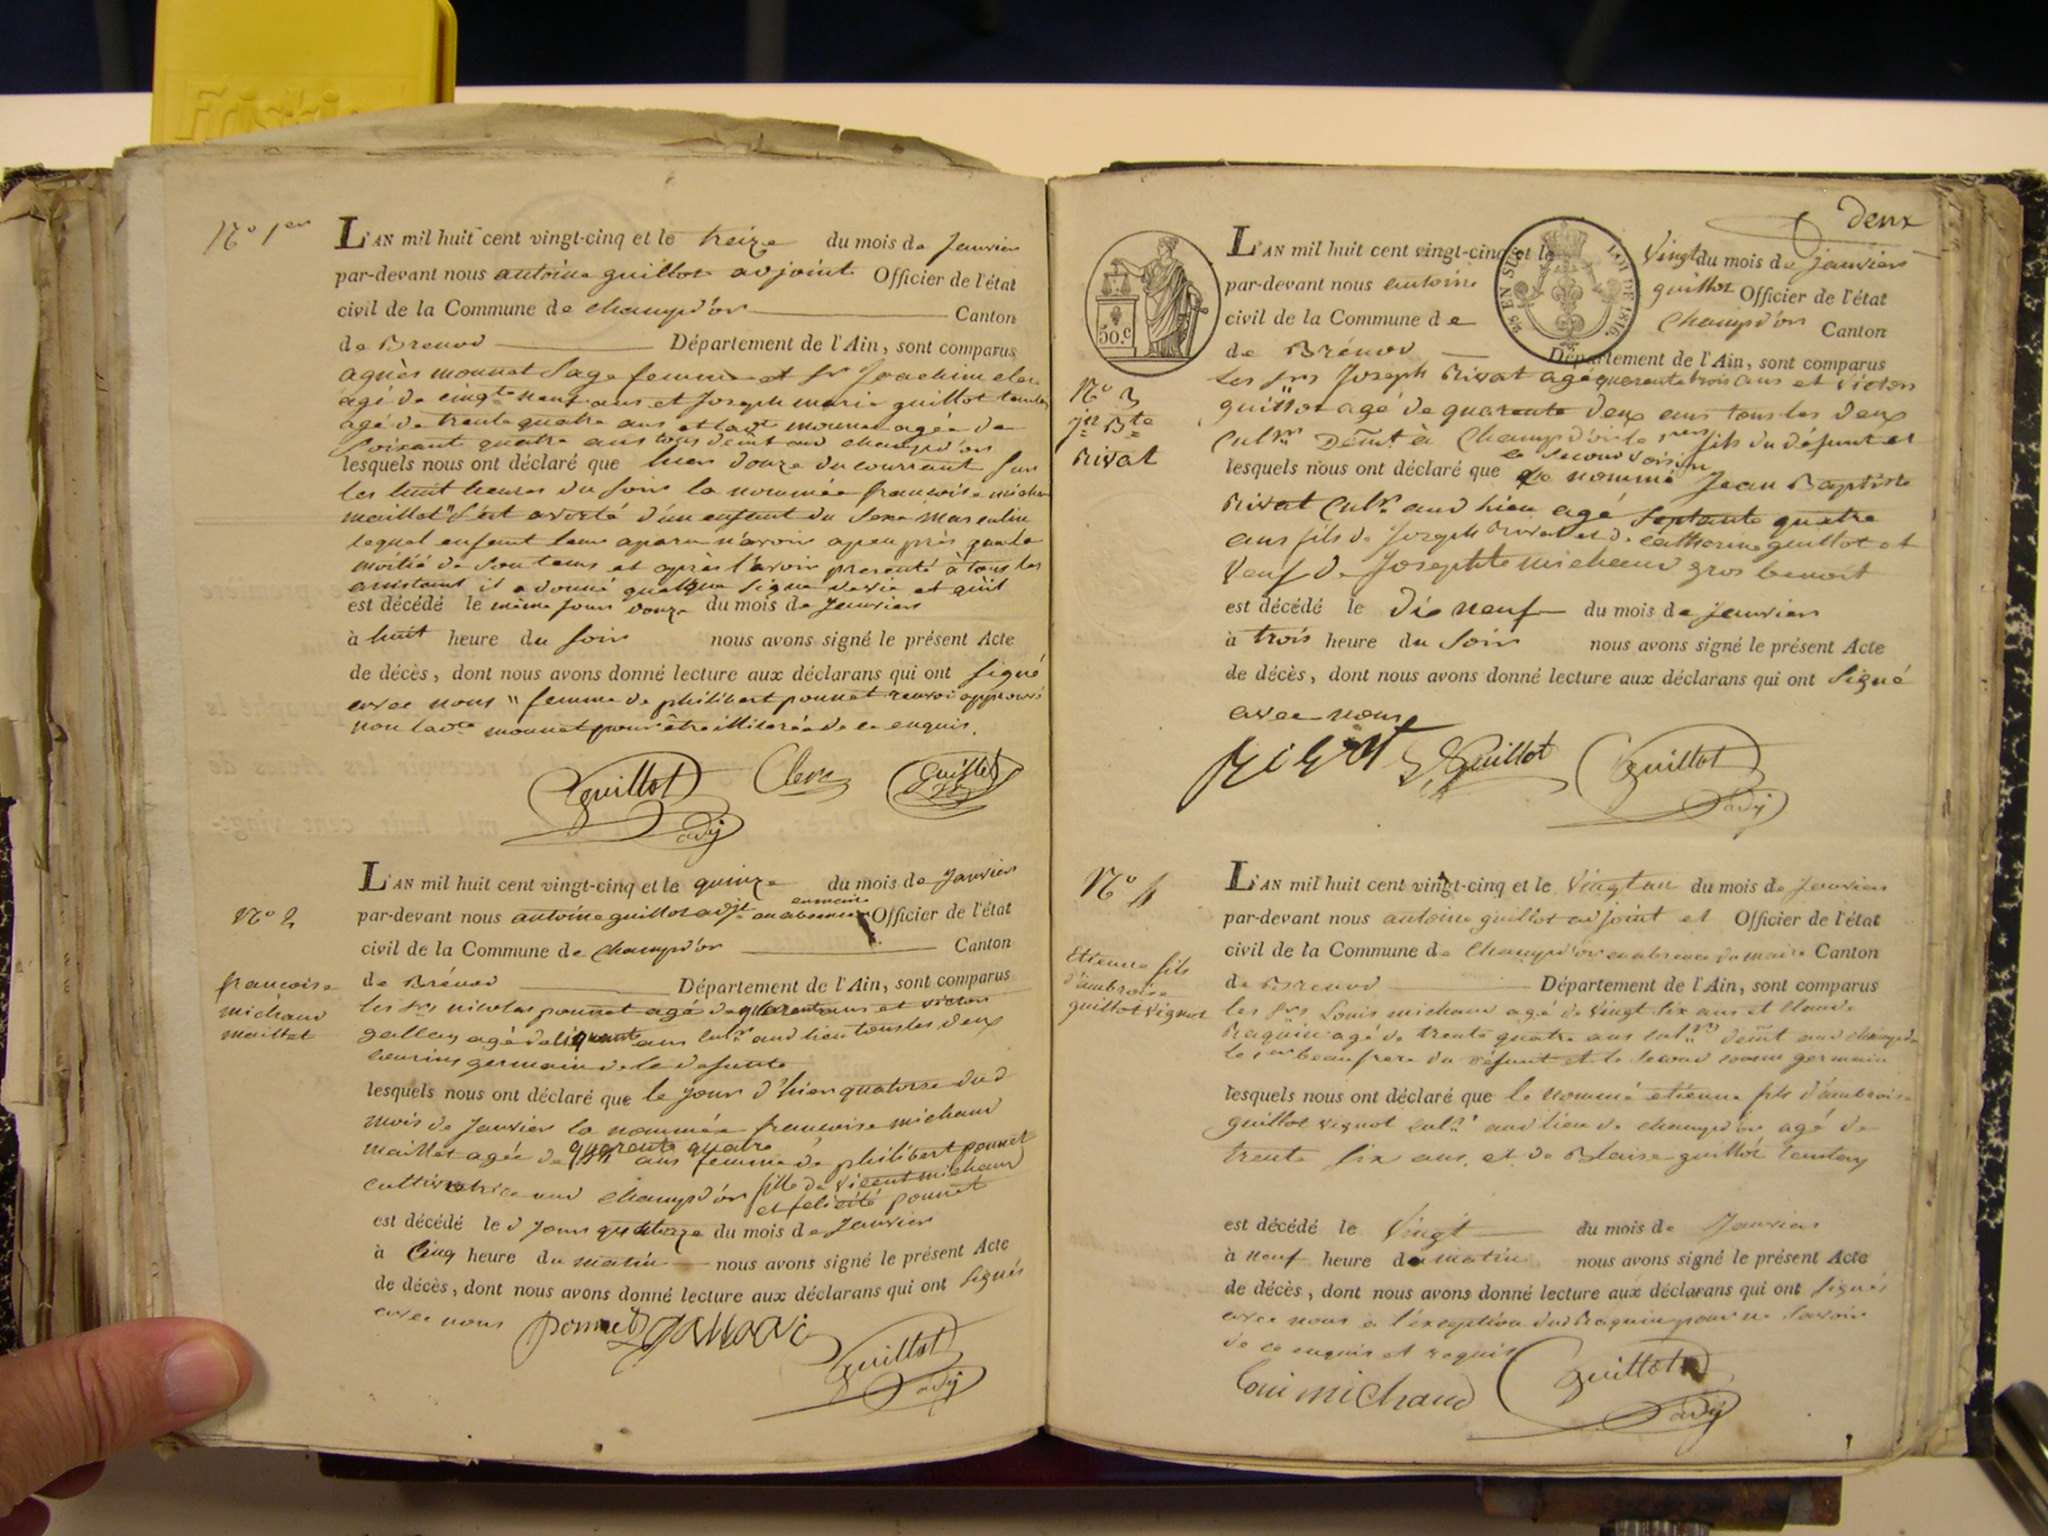 N.o 1er
L'AN mil huit cent vingt-cinq et le treize du mois de Janvier
par-devant nous antoine guillot adjoint Officier de l'état
civil de la Commune de champd'or Canton
de Brenod Département de l'Ain, sont comparus
agnès monnet Sage femme et Sr Joachim clerc
agé de cinqte neuf ans et Joseph marie guillot
agé de trente quatre ans et lad.te monnet agée de
soixante quatre ans tous demt aud champd'or
lesquels nous ont déclaré que hier douze du courrant sur
les huit heures du soir la nommée francoise michaud
maillet " s'est avorté d'un enfant du sexe masculin
lequel enfant leur a paru n'avoir apeu près que la
moitié de son tems et après l'avoir presenté à tous les
assistant il a donné quelque signe de vie et qu'il
est décédé le même jour douze du mois de Janvier
à huit heure du soir nous avons signé le présent Acte
de décès, dont nous avons donné lecture aux déclarans qui ont signé
avec nous " femme de philibert ponnet renvoi approuvé
non lad.te monnet pour être illiterée de ce enquis.
Guillot adj Clerc Guillot
N.o 2
francoise
michaud
maillet
L'AN mil huit cent vingt-cinq et le quinze du mois de Janvier
par-devant nous antoine guillot adjt en absence du maire Officier de l'état
civil de la Commune de champd'or Canton
de Brénod Département de l'Ain, sont comparus
les srs nicolas ponnet agé de quarente ans et victor
gallay agé de ans cultr aud lieu tous les deux
cousins germain de la defunte
lesquels nous ont déclaré que le jour d'hier quatorze dud
mois de Janvier la nommée francoise michaud
maillet agée de quarente quatre ans femme de philibert ponnet
cultivatrice aud champd'or fille de vicent michaud
et felicité ponnet
est décédé le d jour quatorze du mois de Janvier
à Cinq heure du matin nous avons signé le présent Acte
de décès, dont nous avons donné lecture aux déclarans qui ont signés
avec nous ponnet Guillot adj
deux
50.c
EN SUS
LOI DE 1816
N.o 3
jn Bte
Rivat
L'AN mil huit cent vingt-cinq et le Vingt du mois de Janvier
par-devant nous antoine guillot Officier de l'état
civil de la Commune de Champd'or Canton
de Brénod Département de l'Ain, sont comparus
les srs Joseph Rivat agé quarente trois ans et victor
guillot agé de quarente deux ans tous les deux
cultrs demt à Champd'or le 1er fils du défunt et
le second voisin
lesquels nous ont déclaré que le nommé Jean Baptiste
Rivat cultr aud lieu agé septante quatre
ans fils de Joseph Rivat et de Catherine guillot et
veuf de Josephte michaud gros benoit
est décédé le dix neuf du mois de Janvier
à trois heure du soir nous avons signé le présent Acte
de décès, dont nous avons donné lecture aux déclarans qui ont signé
avec nous
Rivat Guillot Guillot adj
N.o 4
Etienne fils
d'ambroise
guillot vignot
L'AN mil huit cent vingt-cinq et le Vingt un du mois de Janvier
par-devant nous antoine guillot adjoint et Officier de l'état
civil de la Commune de Champd'or en absence du maire Canton
de Brenod Département de l'Ain, sont comparus
les srs Louis michaud agé de vingt six ans et Claude
Raquin agé de trente quatre ans cultrs demt aud champdor
le 1er beaufrere du défunt et le second cousin germain
lesquels nous ont déclaré que le nommé etienne fils d'ambroise
guillot vignot cultr aud lieu de champd'or agé de
trente six ans, et de Blaise guillot
est décédé le Vingt du mois de Janvier
à neuf heure du matin nous avons signé le présent Acte
de décès, dont nous avons donné lecture aux déclarans qui ont signés
avec nous à l'exception dud Raquin pour ne savoir
de ce enquis et requis
Loui michaud Guillot adj